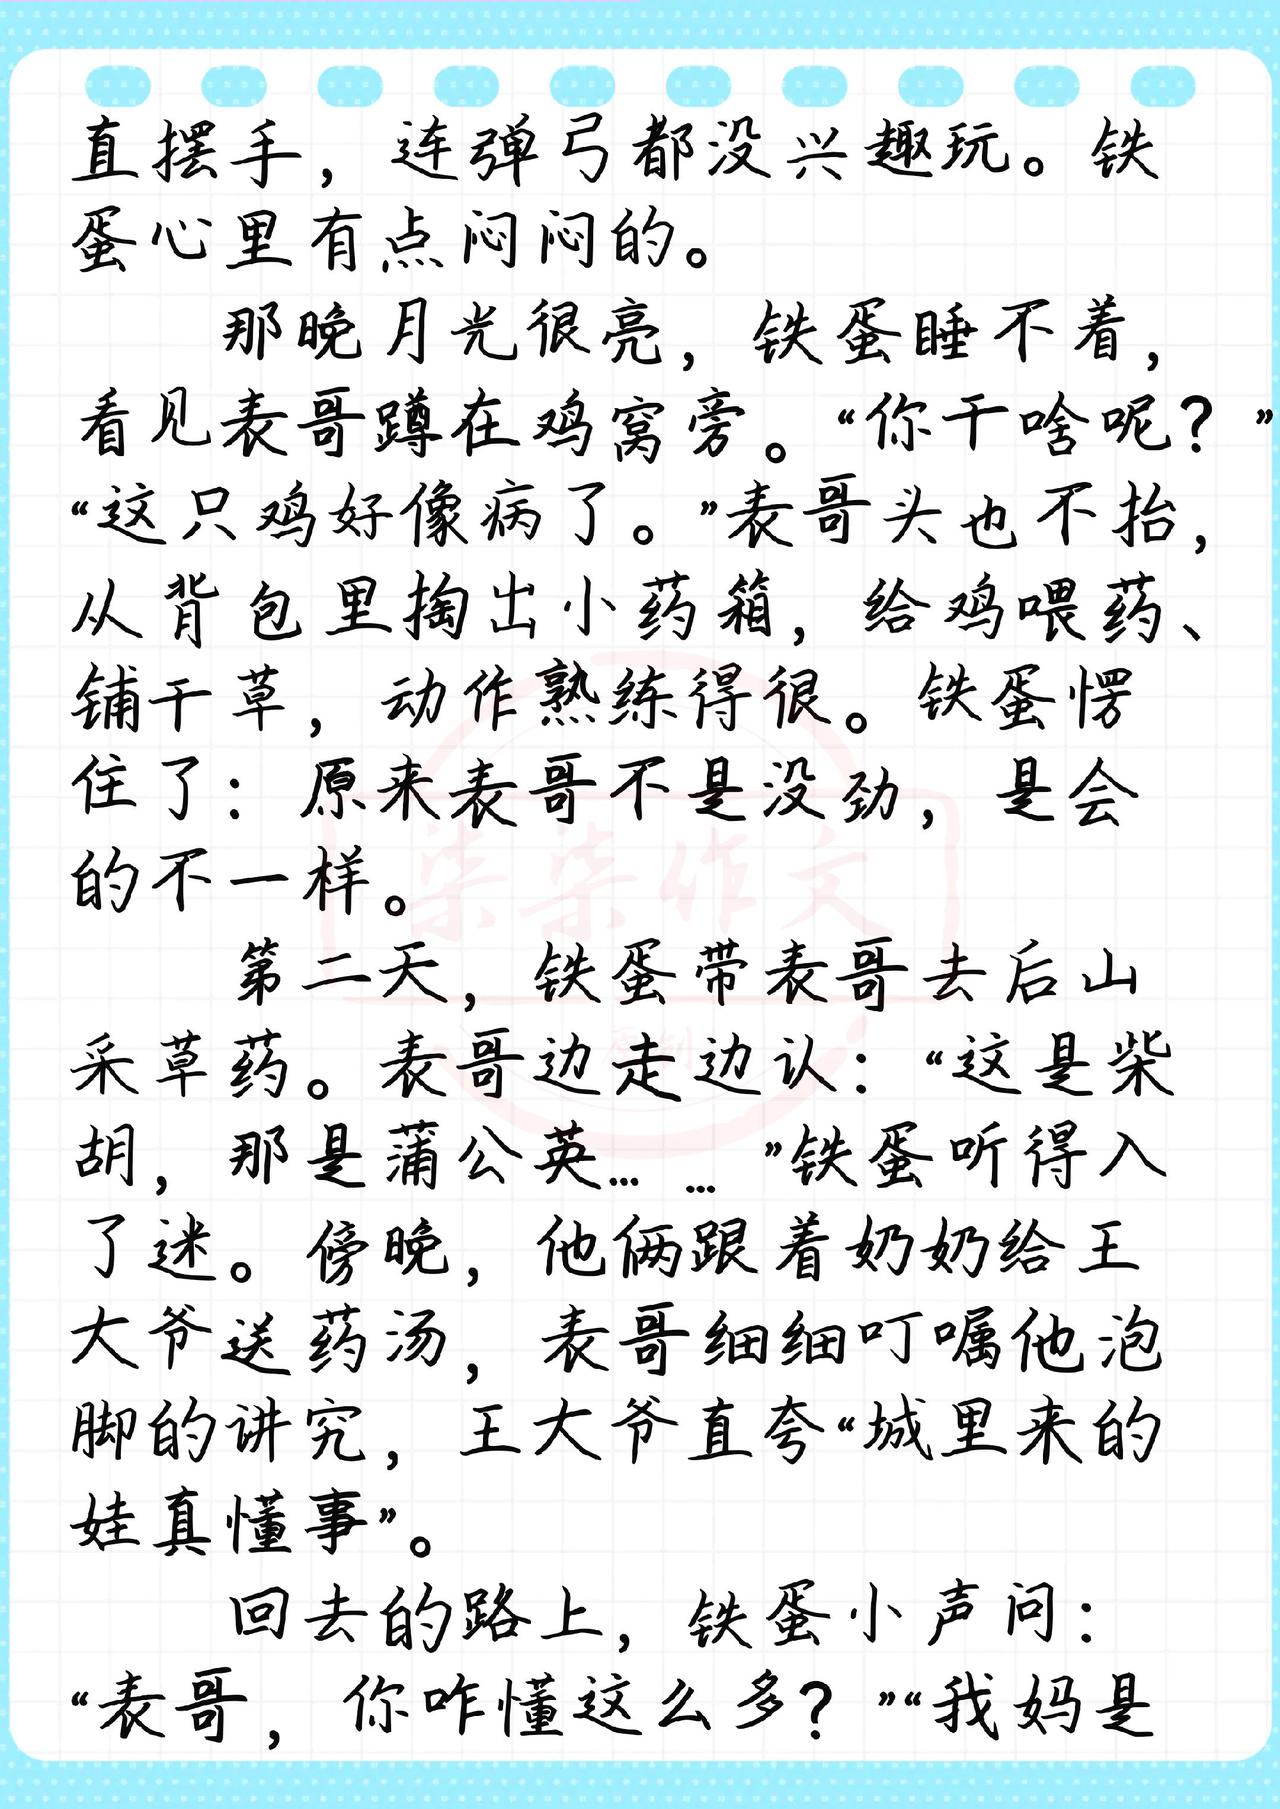 直摆手，连弹弓都没兴趣玩。铁
蛋心里有点闷闷的。
那晚月光很亮，铁蛋睡不着，
看见表哥蹲在鸡窝旁。“你干啥呢？”
“这只鸡好像病了。”表哥头也不抬，
从背包里掏出小药箱，给鸡喂药、
铺干草，动作熟练得很。铁蛋愣
住了：原来表哥不是没劲，是会
的不一样。
第二天，铁蛋带表哥去后山
采草药。表哥边走边认：“这是柴
胡，那是蒲公英……”铁蛋听得入
了迷。傍晚，他俩跟着奶奶给王
大爷送药汤，表哥细细叮嘱他泡
脚的讲究，王大爷直夸“城里来的
娃真懂事”。
回去的路上，铁蛋小声问：
“表哥，你咋懂这么多？”“我妈是
柒柒作文
原创